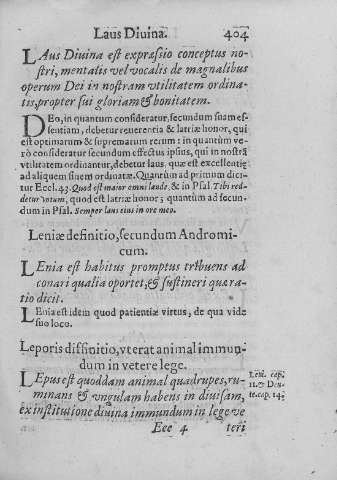 Laus Diuina. 404
LAus Diuina est expræssio conceptus no-
stri, mentalis vel vocalis de magnalibus
operum Dei in nostram vtilitatem ordina-
tis, propter sui gloriam & bonitatem.
DEo, in quantum consideratur, secundum suam es-
sentiam, debetur reuerentia & latriæ honor, qui
est optimarum & supremarum rerum: in quantum ve-
rò consideratur secundum effectus ipsius, qui in nostrã
vtilitatem ordinantur, debetur laus. quæ est excellentiæ
ad aliquem finem ordinatæ. Quantũm ad primum dici-
tur Eccl. 43. Quod est maior omni laude, & in Psal. Tibi red-
detur votum; quod est latriæ honor; quantum ad secun-
dum in Psal. Semper laus eius in ore meo.
Leniæ definitio, secundum Andromi-
cum.
LEnia est habitus promptus tribuens ad
conari qualia oportet, & sustineri quæra-
tio dicit.
LEnia est idem quod patientiæ virtus, de qua vide
suo loco.
Leporis diffinitio, vt erat animal immun-
dum in vetere lege.
LEpus est quoddam animal quadrupes, ru-
Leui. cap.
minans & vngulam habens in diuisam,
11. & Deu-
te. cap. 14.
ex institutione diuina immundum in lege ve
Eee 4 teri